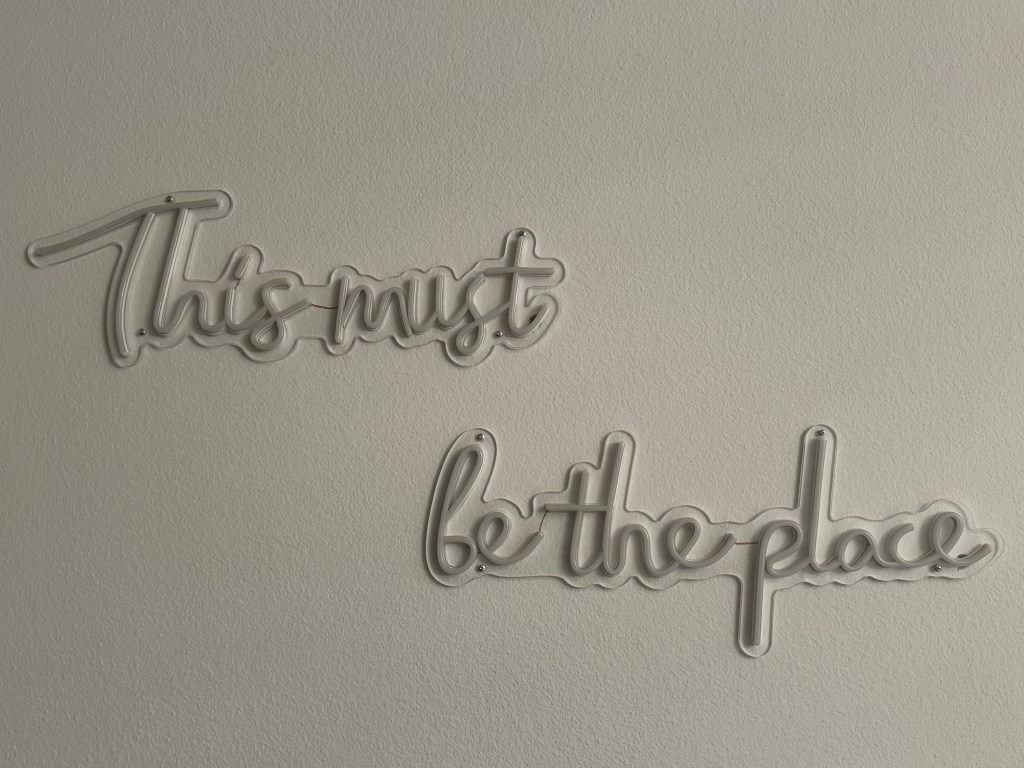 This must
be the place